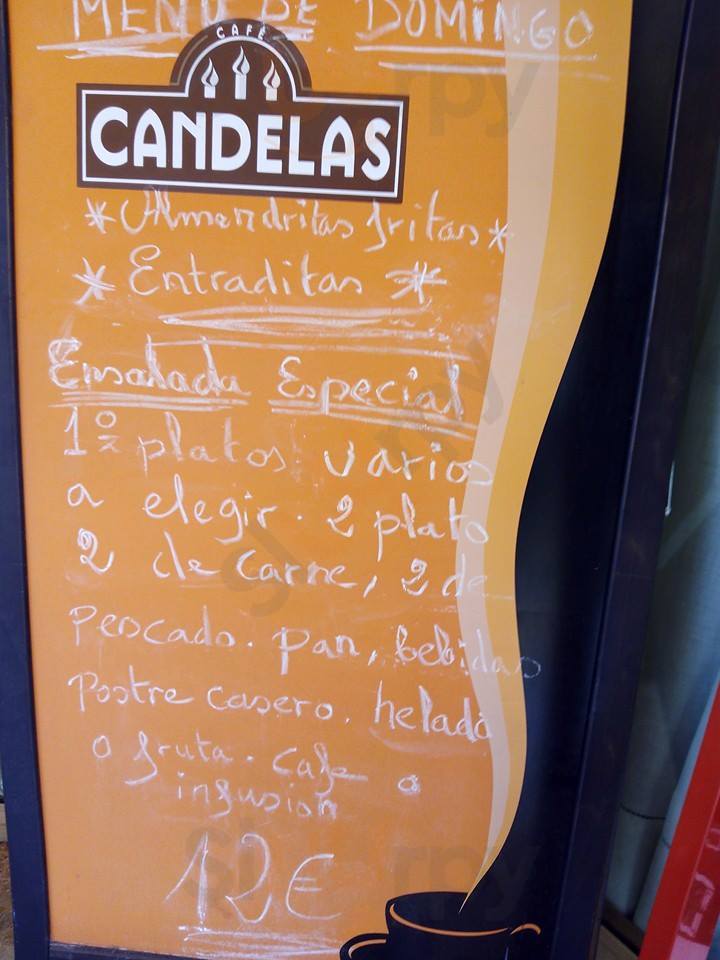 MENU DE DOMINGO
CAFÉ
CANDELAS
*Almendritas fritas*
* Entraditas *
Ensalada Especial
1º platos varios
a elegir. 2 plato
2 de carne, 2 de
Pescado. pan, bebidas
Postre casero. helado
o fruta. Cafe o
infusion
12€